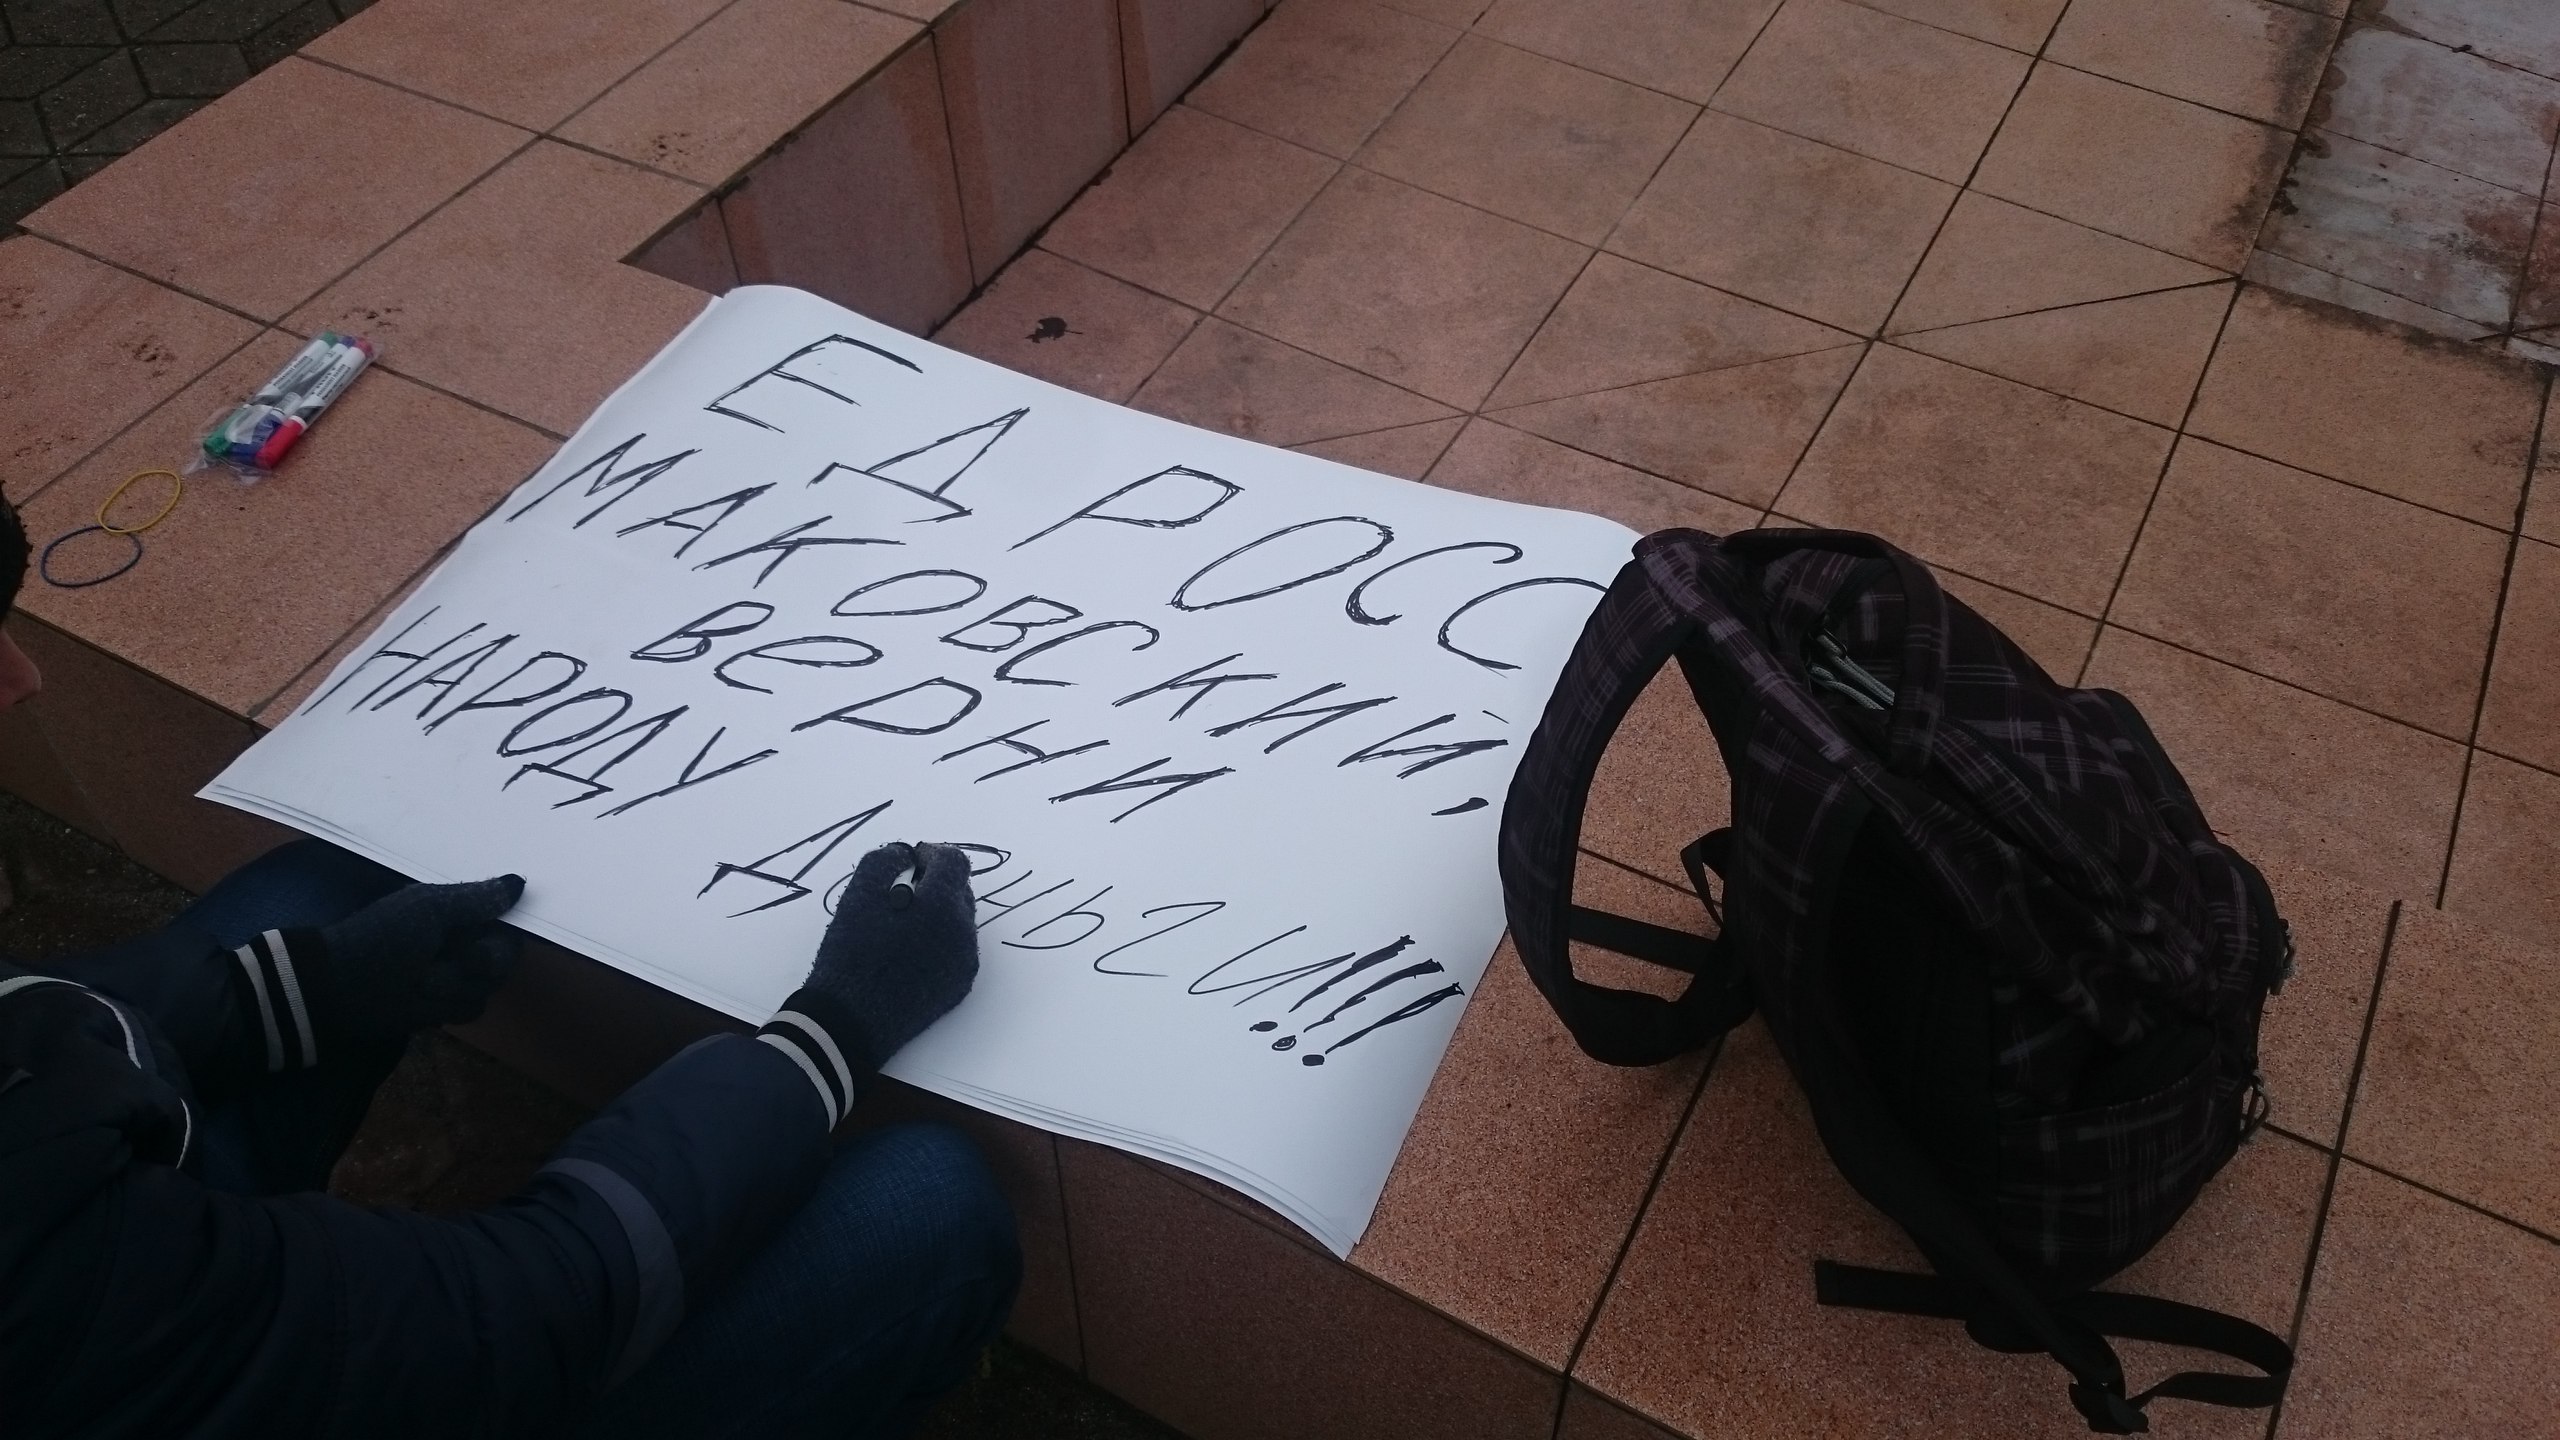 ЕД РОСС
МАКОВСКИЙ,
ВеРНИ
НАРОДУ
ДеНЬГИ!!!